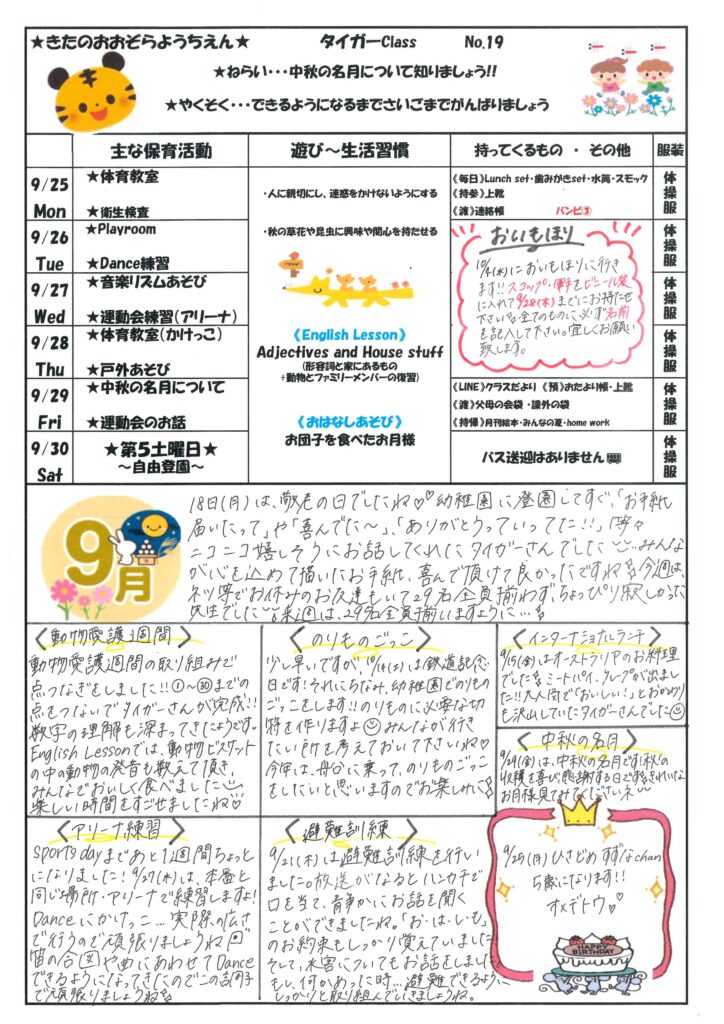 ★きたのおおぞらようちえん★ タイガーClass No.19
★ねらい・・・中秋の名月について知りましょう!!
★やくそく・・・できるようになるまでさいごまでがんばりましょう
主な保育活動 遊び～生活習慣 持ってくるもの ・ その他 服装
9/25 Mon
★体育教室
★衛生検査
《毎日》Lunch set・歯みがきset・水筒・スモック
《持参》上靴
《渡》連絡帳 バンビ③
体操服
9/26 Tue
★Playroom
★Dance練習
体操服
9/27 Wed
★音楽リズムあそび
★運動会練習(アリーナ)
体操服
9/28 Thu
★体育教室(かけっこ)
★戸外あそび
体操服
9/29 Fri
★中秋の名月について
★運動会のお話
《LINE》クラスだより 《預》おたより帳・上靴
《渡》父母の会袋・課外の袋
《持帰》月刊絵本・みんなの夏・home work
体操服
9/30 Sat
★第5土曜日★
～自由登園～
バス送迎はありません
体操服
・人に親切にし、迷惑をかけないようにする
・秋の草花や昆虫に興味や関心を持たせる
《English Lesson》
Adjectives and House stuff
(形容詞と家にあるもの
+動物とファミリーメンバーの復習)
《おはなしあそび》
お団子を食べたお月様
おいもほり
10/4(水)においもほりに行き
ます!!スコップ・軍手をビニール袋
に入れて9/28(木)までにお持たせ
下さい。全てのものに必ず名前
を記入して下さい。宜しくお願い
致します。
9月
18日(月)は、敬老の日でしたね♡♡幼稚園に登園してすぐ、「お手紙
届いたって」や「喜んでた～」、「ありがとうっていってた!!」等々
ニコニコ嬉しそうにお話してくれたタイガーさんでした みんな
が心を込めて描いたお手紙、喜んで頂けて良かったですね 今週は、
ネツ等でお休みのお友達もいて29名全員揃わず、ちょっぴり寂しかった
先生でした 来週は、29名全員揃いますように…
〈動物愛護週間〉
動物愛護週間の取り組みで
点つなぎをしました!!①～㉚までの
点をつないでタイガーさんが完成!!
数字の理解も深まってきたようです。
English Lessonでは、動物ビスケット
の中の動物の発音も教えて頂き、
みんなでおいしく食べました
楽しい時間をすごせましたね♡
〈のりものごっこ〉
少し早いですが、10/14(土)は鉄道記念
日です!それにちなみ、幼稚園でのりもの
ごっこをします!!のりものに必要な切
符を作りますよ みんなが行き
たい所を考えておいて下さいね♡
今年は、舟分に乗って、のりものごっこ
をしたいと思いますのでお楽しみに
〈インターナショナルランチ〉
9/15(金)はオーストラリアのお料理
でした ミートパイ、クレープが出まし
た!!大人向で「おいしい!」とおかわり
も沢山していたタイガーさんでした
〈中秋の名月〉
9/29(金)は、中秋の名月です!秋の
収穫を喜び、感謝する日です きれいな
お月様見てみてくださいネ
〈アリーナ練習〉
sports dayまであと1週間ちょっと
になりました!9/27(水)は、本番と
同じ場所・アリーナで練習しますよ!
Danceにかけっこ…実際の広さ
で行うので頑張りましょうね
笛の合図や曲にあわせてDance
できるようになってきたのでこの調子
で頑張りましょうね
〈避難訓練〉
9/21(木)は避難訓練を行い
ました。放送がなるとハンカチで
口を当て、静かにお話を聞く
ことができましたね。「お・は・し・も」
のお約束もしっかり覚えていました
そして、水害についてもお話をしました
もし、何かあった時…避難できるように、
しっかりと取り組んでいきましょうね。
9/25(月)ひさどめ すずなchan
5歳になります!!
オメデトウ♡
HAPPY BIRTHDAY